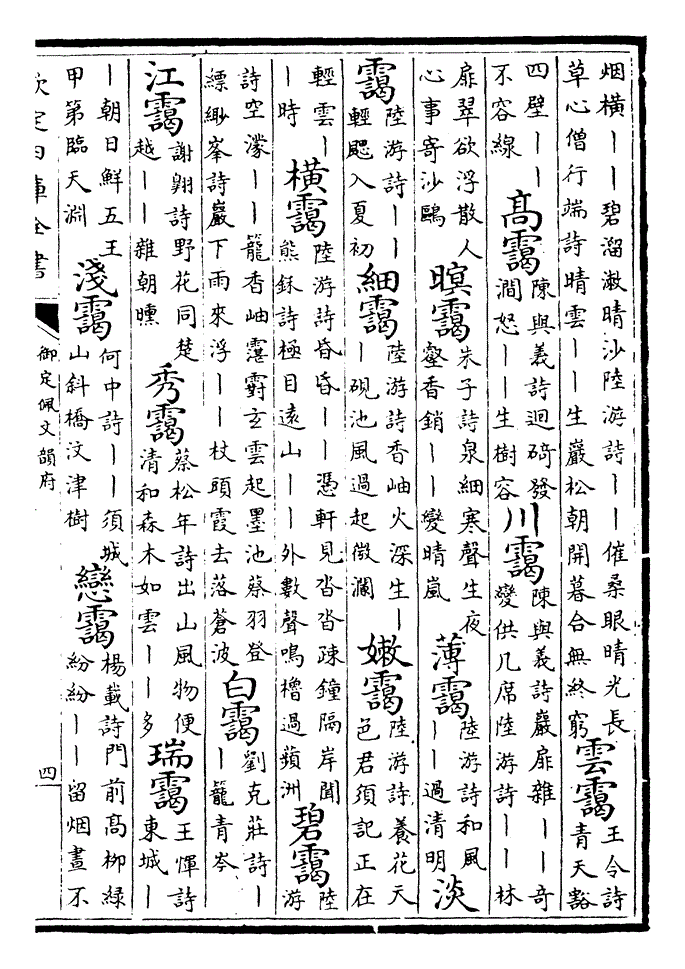 烟橫丨丨碧溜漱晴沙陸游詩丨丨催桑眼晴光長
草心僧行端詩晴雲丨丨生巖松朝開暮合無終窮
雲靄
王令詩
青天豁
四壁丨丨
不容線
高靄
陳與義詩迴碕發
澗怒丨丨生樹容
川靄
陳與義詩巖扉雜丨丨奇
變供几席陸游詩丨丨林
扉翠欲浮散人
心事寄沙鷗
暝靄
朱子詩泉細寒聲生夜
壑香銷丨丨變晴嵐
薄靄
陸游詩和風
丨丨過清明
淡
靄
陸游詩丨丨
輕颸入夏初
細靄
陸游詩香岫火深生丨
丨硯池風過起微瀾
嫩靄
陸游詩養花天
色君須記正在
輕雲丨
丨時
橫靄
陸游詩昏昏丨丨憑軒見沓沓疎鐘隔岸聞
熊鉌詩極目遠山丨丨外數聲鳴櫓過蘋洲
碧靄
陸
游
詩空濛丨丨籠香岫霮䨴玄雲起墨池蔡羽登
縹緲峯詩巖下雨來浮丨丨杖頭霞去落蒼波
白靄
劉克莊詩丨
丨籠青岑
江靄
謝翱詩野花同楚
越丨丨雜朝曛
秀靄
蔡松年詩出山風物便
清和森木如雲丨丨多
瑞靄
王惲詩
東城丨
丨朝日鮮五王
甲第臨天淵
淺靄
何中詩丨丨須城
山斜橋汶津樹
戀靄
楊載詩門前高柳綠
紛紛丨丨留烟晝不
欽定四庫全書
御定佩文韻府
四